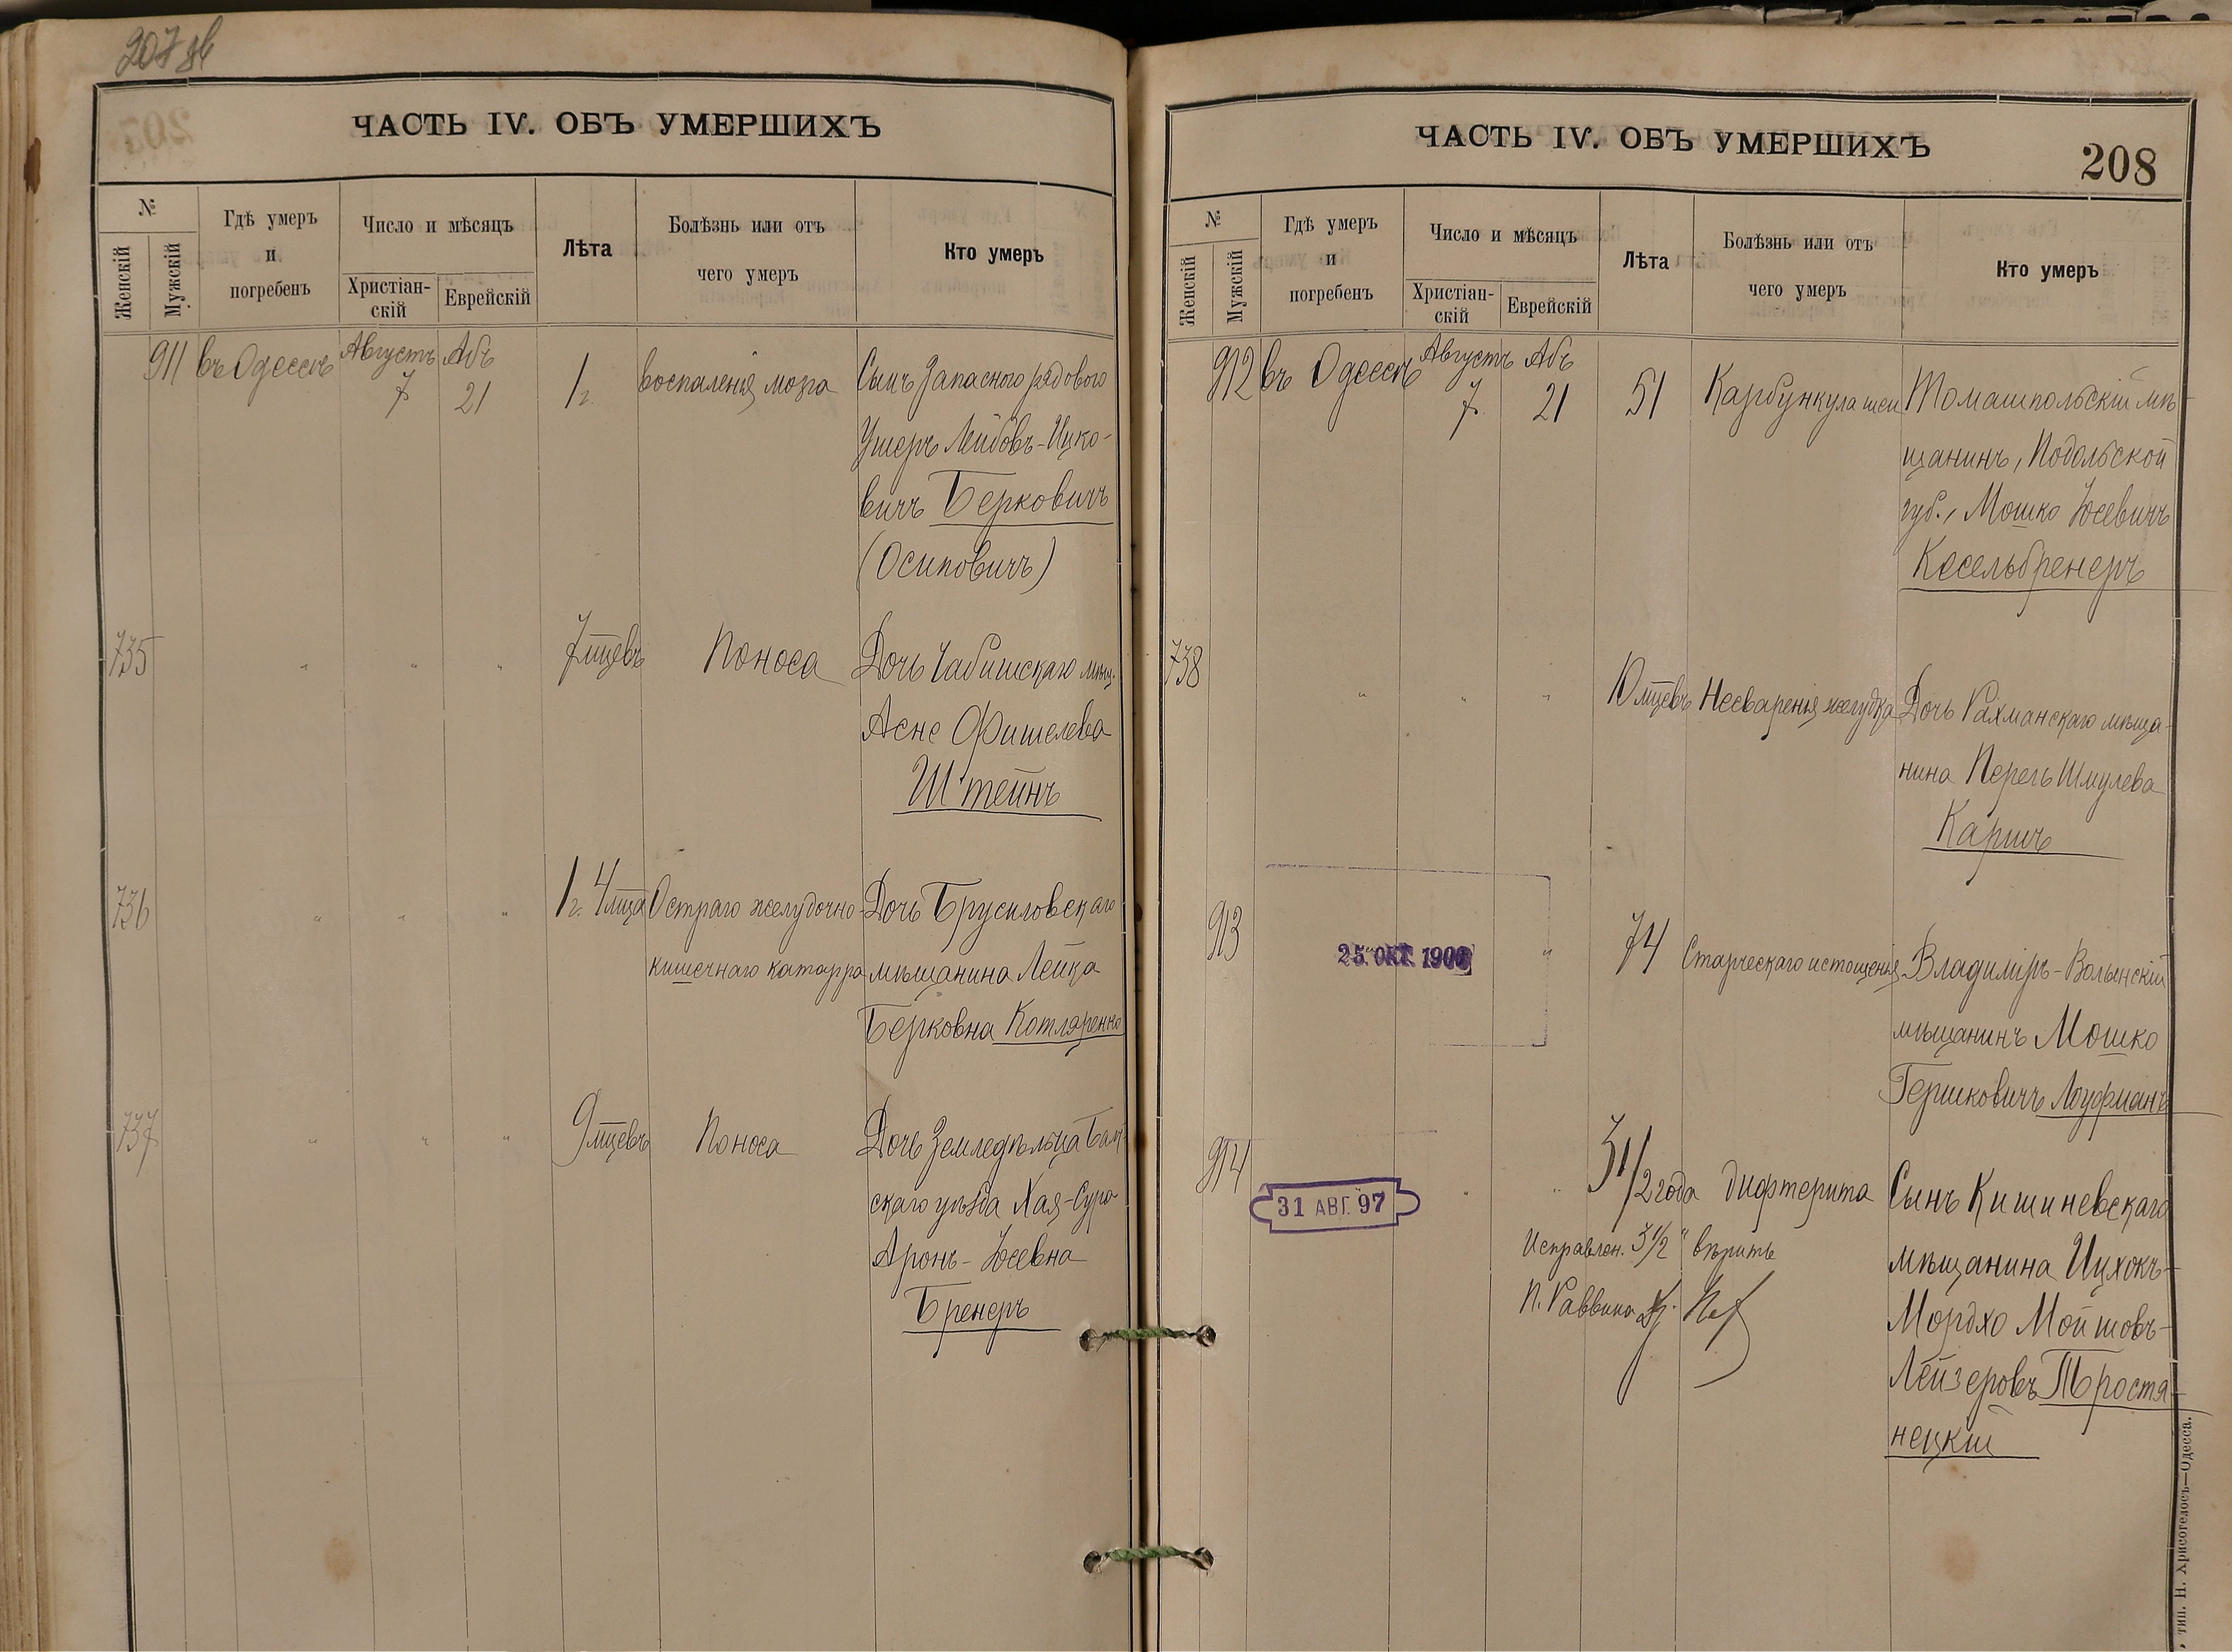 207 об
ЧАСТЬ IV. ОБЪ УМЕРШИХЪ
№
Женскій
Мужскій
Гдѣ умеръ
и
погребенъ
Число и мѣсяцъ
Христіан-
скій
Еврейскій
Лѣта
Болѣзнь или отъ
чего умеръ
Кто умеръ
911 въ Одессѣ Августъ 7 Абъ 21 1 г. воспаленія мозга Сынъ запасного рядового
Ушеръ Лейбовъ-Ицко-
вичъ Берковичъ
(Осиповичъ)
735 " " " 7 мцевъ Поноса Дочь Чабишскаго мѣщ.
Асне Фишелева
Штейнъ
736 " " " 1 г. 4 мца Остраго желудочно- Дочь Брусиловскаго
кишечнаго катарра мѣщанина Лейка
Берковна Котляренко
737 " " " 9 мцевъ Поноса Дочь земледѣльца
скаго уѣзда Хая-Сура
Аронъ-Іосевна
Бренеръ
ЧАСТЬ IV. ОБЪ УМЕРШИХЪ
208
№
Женскій
Мужскій
Гдѣ умеръ
и
погребенъ
Число и мѣсяцъ
Христіан-
скій
Еврейскій
Лѣта
Болѣзнь или отъ
чего умеръ
Кто умеръ
912 въ Одессѣ Августъ 7 Абъ 21 51 Карбункула шеи Томашпольскій мѣ-
щанинъ, Подольской
губ., Мошко Іосевичъ
Кесельбренеръ
738 " " " 10 мцевъ Несваренія желудка Дочь Рахманскаго мѣща-
нина Перель Шмулева
Каричъ
913 " " " 74 Старческаго истощенія Владиміръ-Волынскій
25 ОКТ. 1900
мѣщанинъ Мошко
Гершковичъ Лоуфманъ
914 " " 3 1/2 года дифтерита Сынъ Кишиневскаго
31 АВГ. 97
Исправлен. 3 1/2 " вѣрить
мѣщанина Ицхокъ-
П. Раввина
Мордхо Мойшовъ-
Лейзеровъ Тростя-
нецкій
тип. Н. Хрисогелосъ—Одесса.